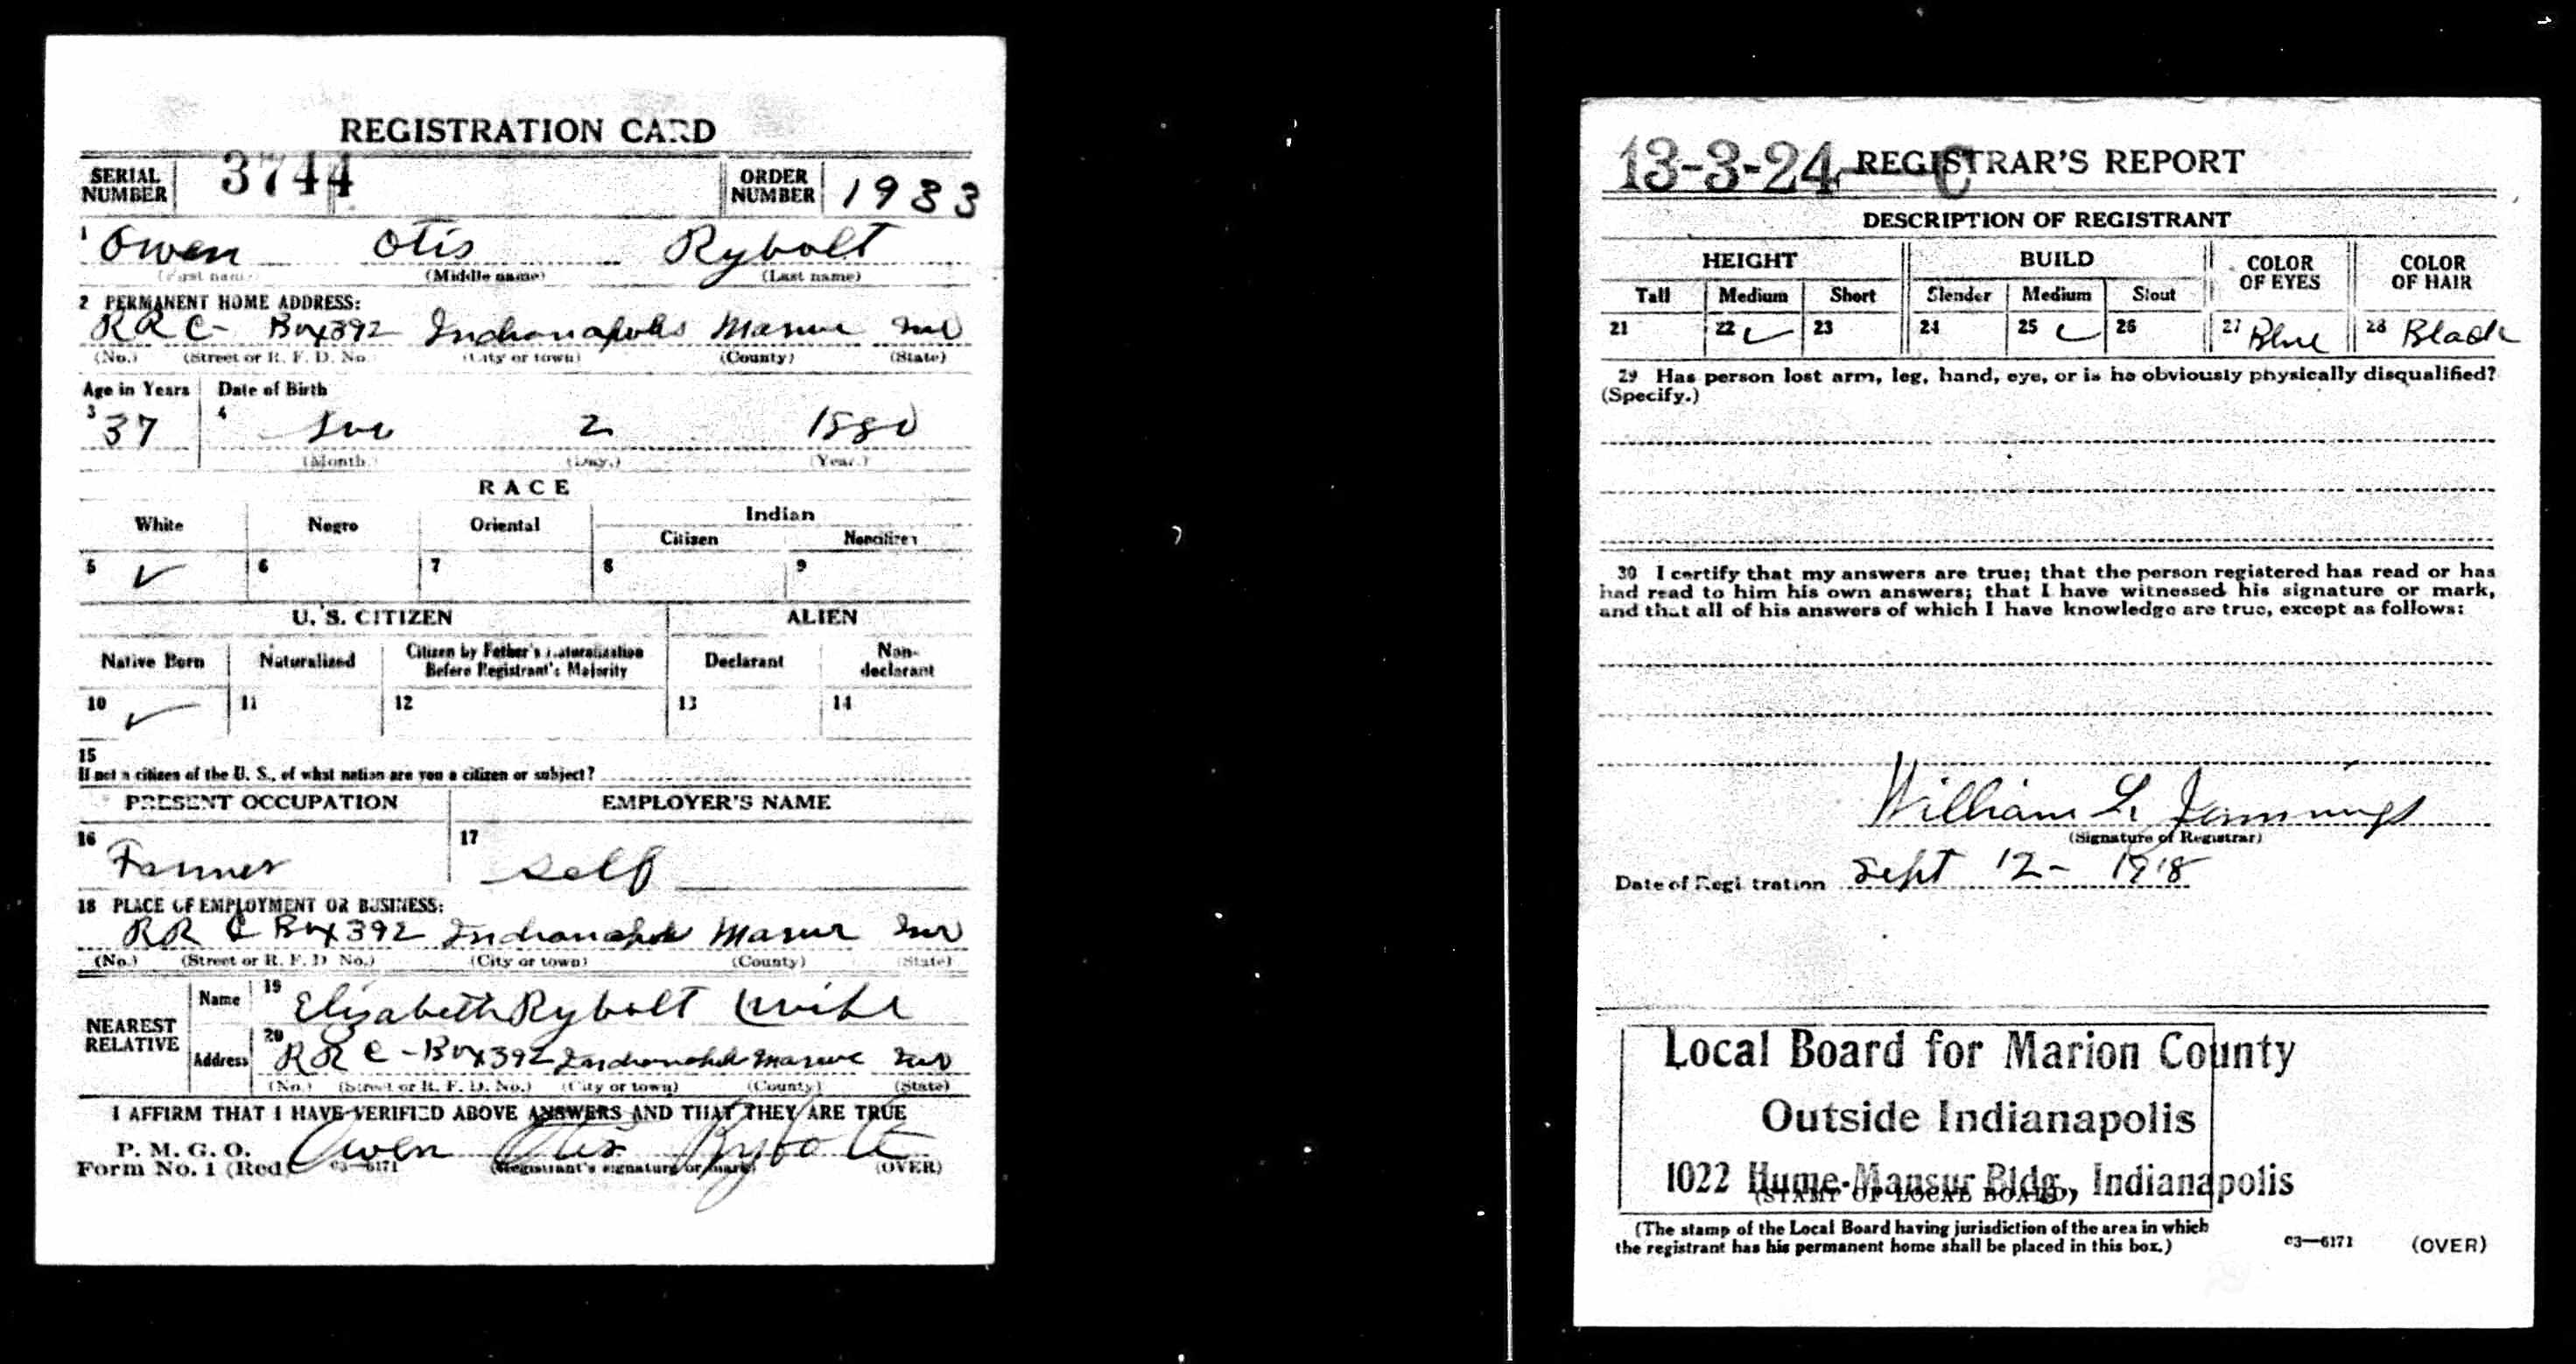 REGISTRATION CARD
SERIAL NUMBER 3744 ORDER NUMBER 1983
1 Owen Otis Rybolt
(First name) (Middle name) (Last name)
2 PERMANENT HOME ADDRESS:
R R C - Box 392 Indianapolis Marion Ind
(No.) (Street or R. F. D. No.) (City or town) (County) (State)
Age in Years Date of Birth
3 37 4 2 1880
(Month.) (Day.) (Year.)
RACE
White Negro Oriental Indian
Citizen Noncitizen
5 ✓ 6 7 8 9
U. S. CITIZEN ALIEN
Native Born Naturalized Citizen by Father's Naturalization Before Registrant's Majority Declarant Non-declarant
10 ✓ 11 12 13 14
15
If not a citizen of the U. S., of what nation are you a citizen or subject?
PRESENT OCCUPATION EMPLOYER'S NAME
16 Farmer 17 Self
18 PLACE OF EMPLOYMENT OR BUSINESS:
RR C Box 392 Indianapolis Marion Ind
(No.) (Street or R. F. D. No.) (City or town) (County) (State)
NEAREST RELATIVE Name 19 Elizabeth Rybolt wife
Address 20 R R C - Box 392 Indianapolis Marion Ind
(No.) (Street or R. F. D. No.) (City or town) (County) (State)
I AFFIRM THAT I HAVE VERIFIED ABOVE ANSWERS AND THAT THEY ARE TRUE
P. M. G. O.
Form No. 1 (Red) 03—6171 Owen Otis Rybolt
(Registrant's signature or mark) (OVER)
13-3-24- C REGISTRAR'S REPORT
DESCRIPTION OF REGISTRANT
HEIGHT BUILD COLOR OF EYES COLOR OF HAIR
Tall Medium Short Slender Medium Stout
21 22 ✓ 23 24 25 ✓ 26 27 Blue 28 Black
29 Has person lost arm, leg, hand, eye, or is he obviously physically disqualified?
(Specify.)
30 I certify that my answers are true; that the person registered has read or has
had read to him his own answers; that I have witnessed his signature or mark,
and that all of his answers of which I have knowledge are true, except as follows:
William L Jennings
(Signature of Registrar)
Date of Registration Sept 12 - 1918
Local Board for Marion County
Outside Indianapolis
1022 Hume-Mansur Bldg., Indianapolis
(STAMP OF LOCAL BOARD)
(The stamp of the Local Board having jurisdiction of the area in which
the registrant has his permanent home shall be placed in this box.)
03—6171 (OVER)